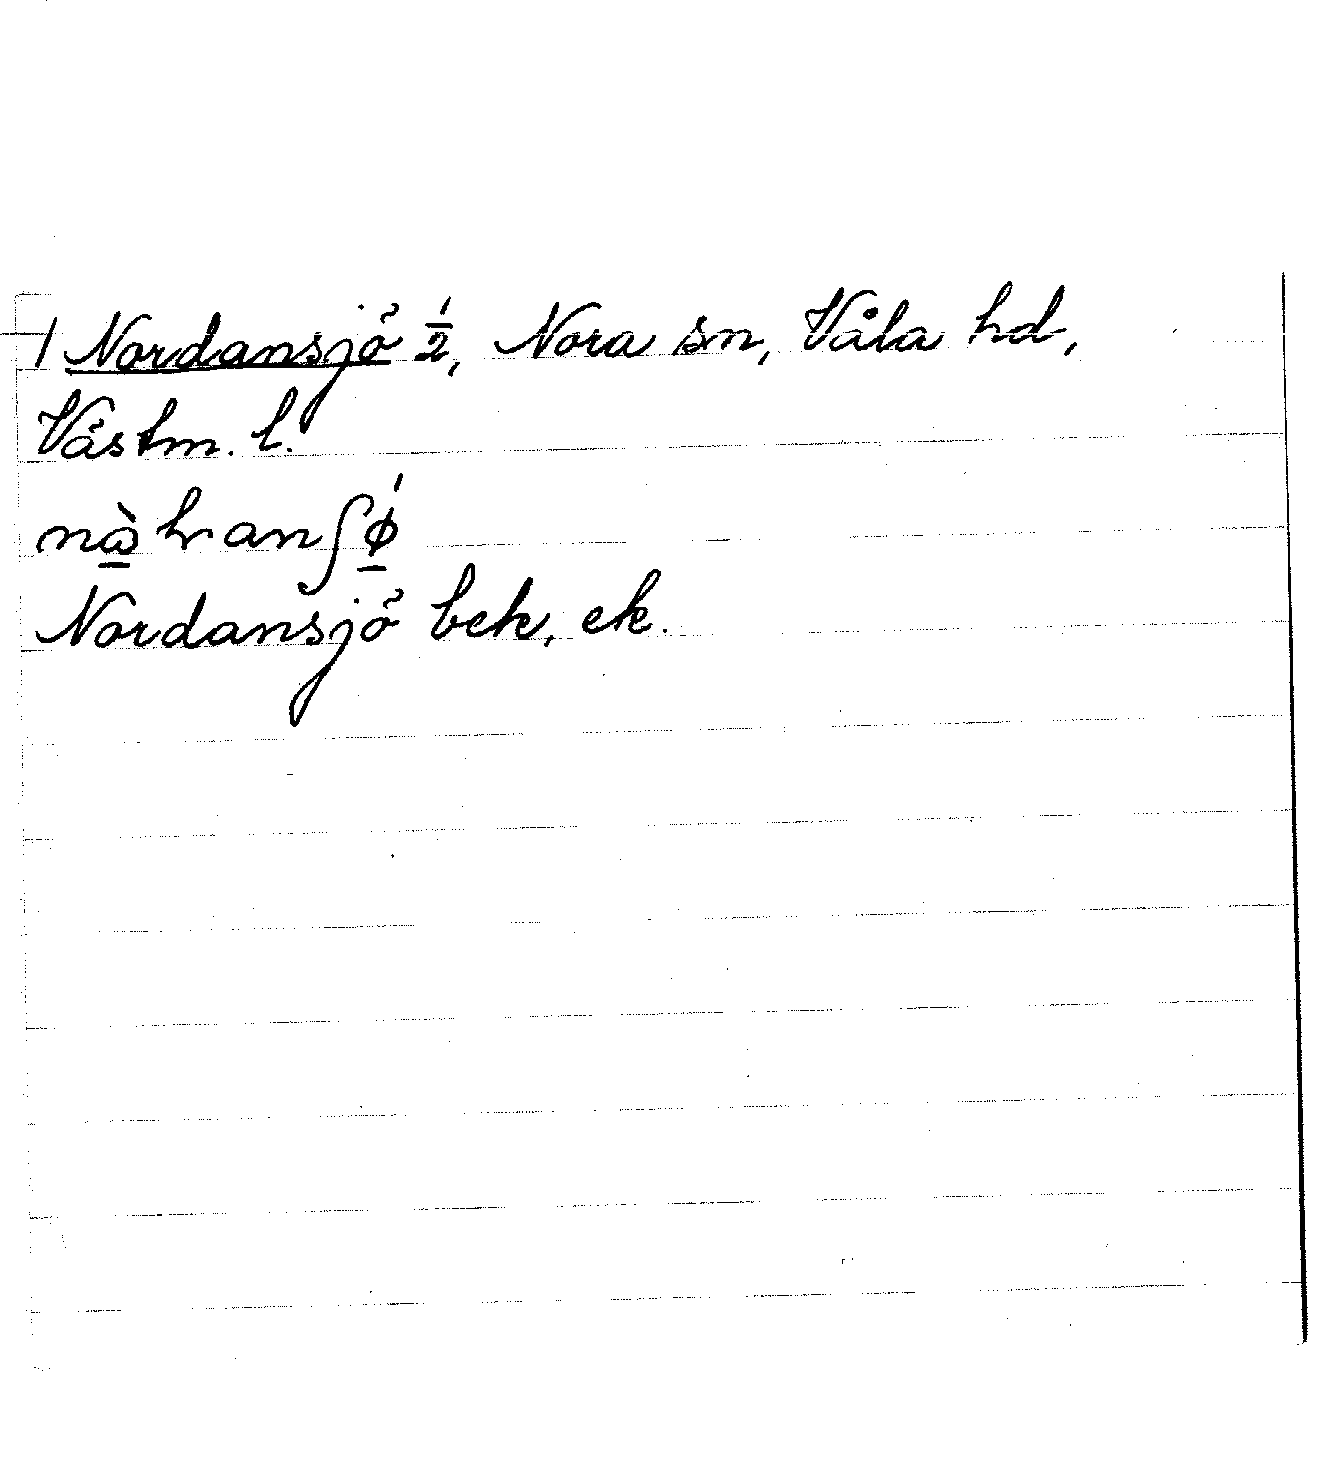 1 Nordansjö ½, Nora sn, Våla hd,
Västm. l.
Nordansjö bek, ek.